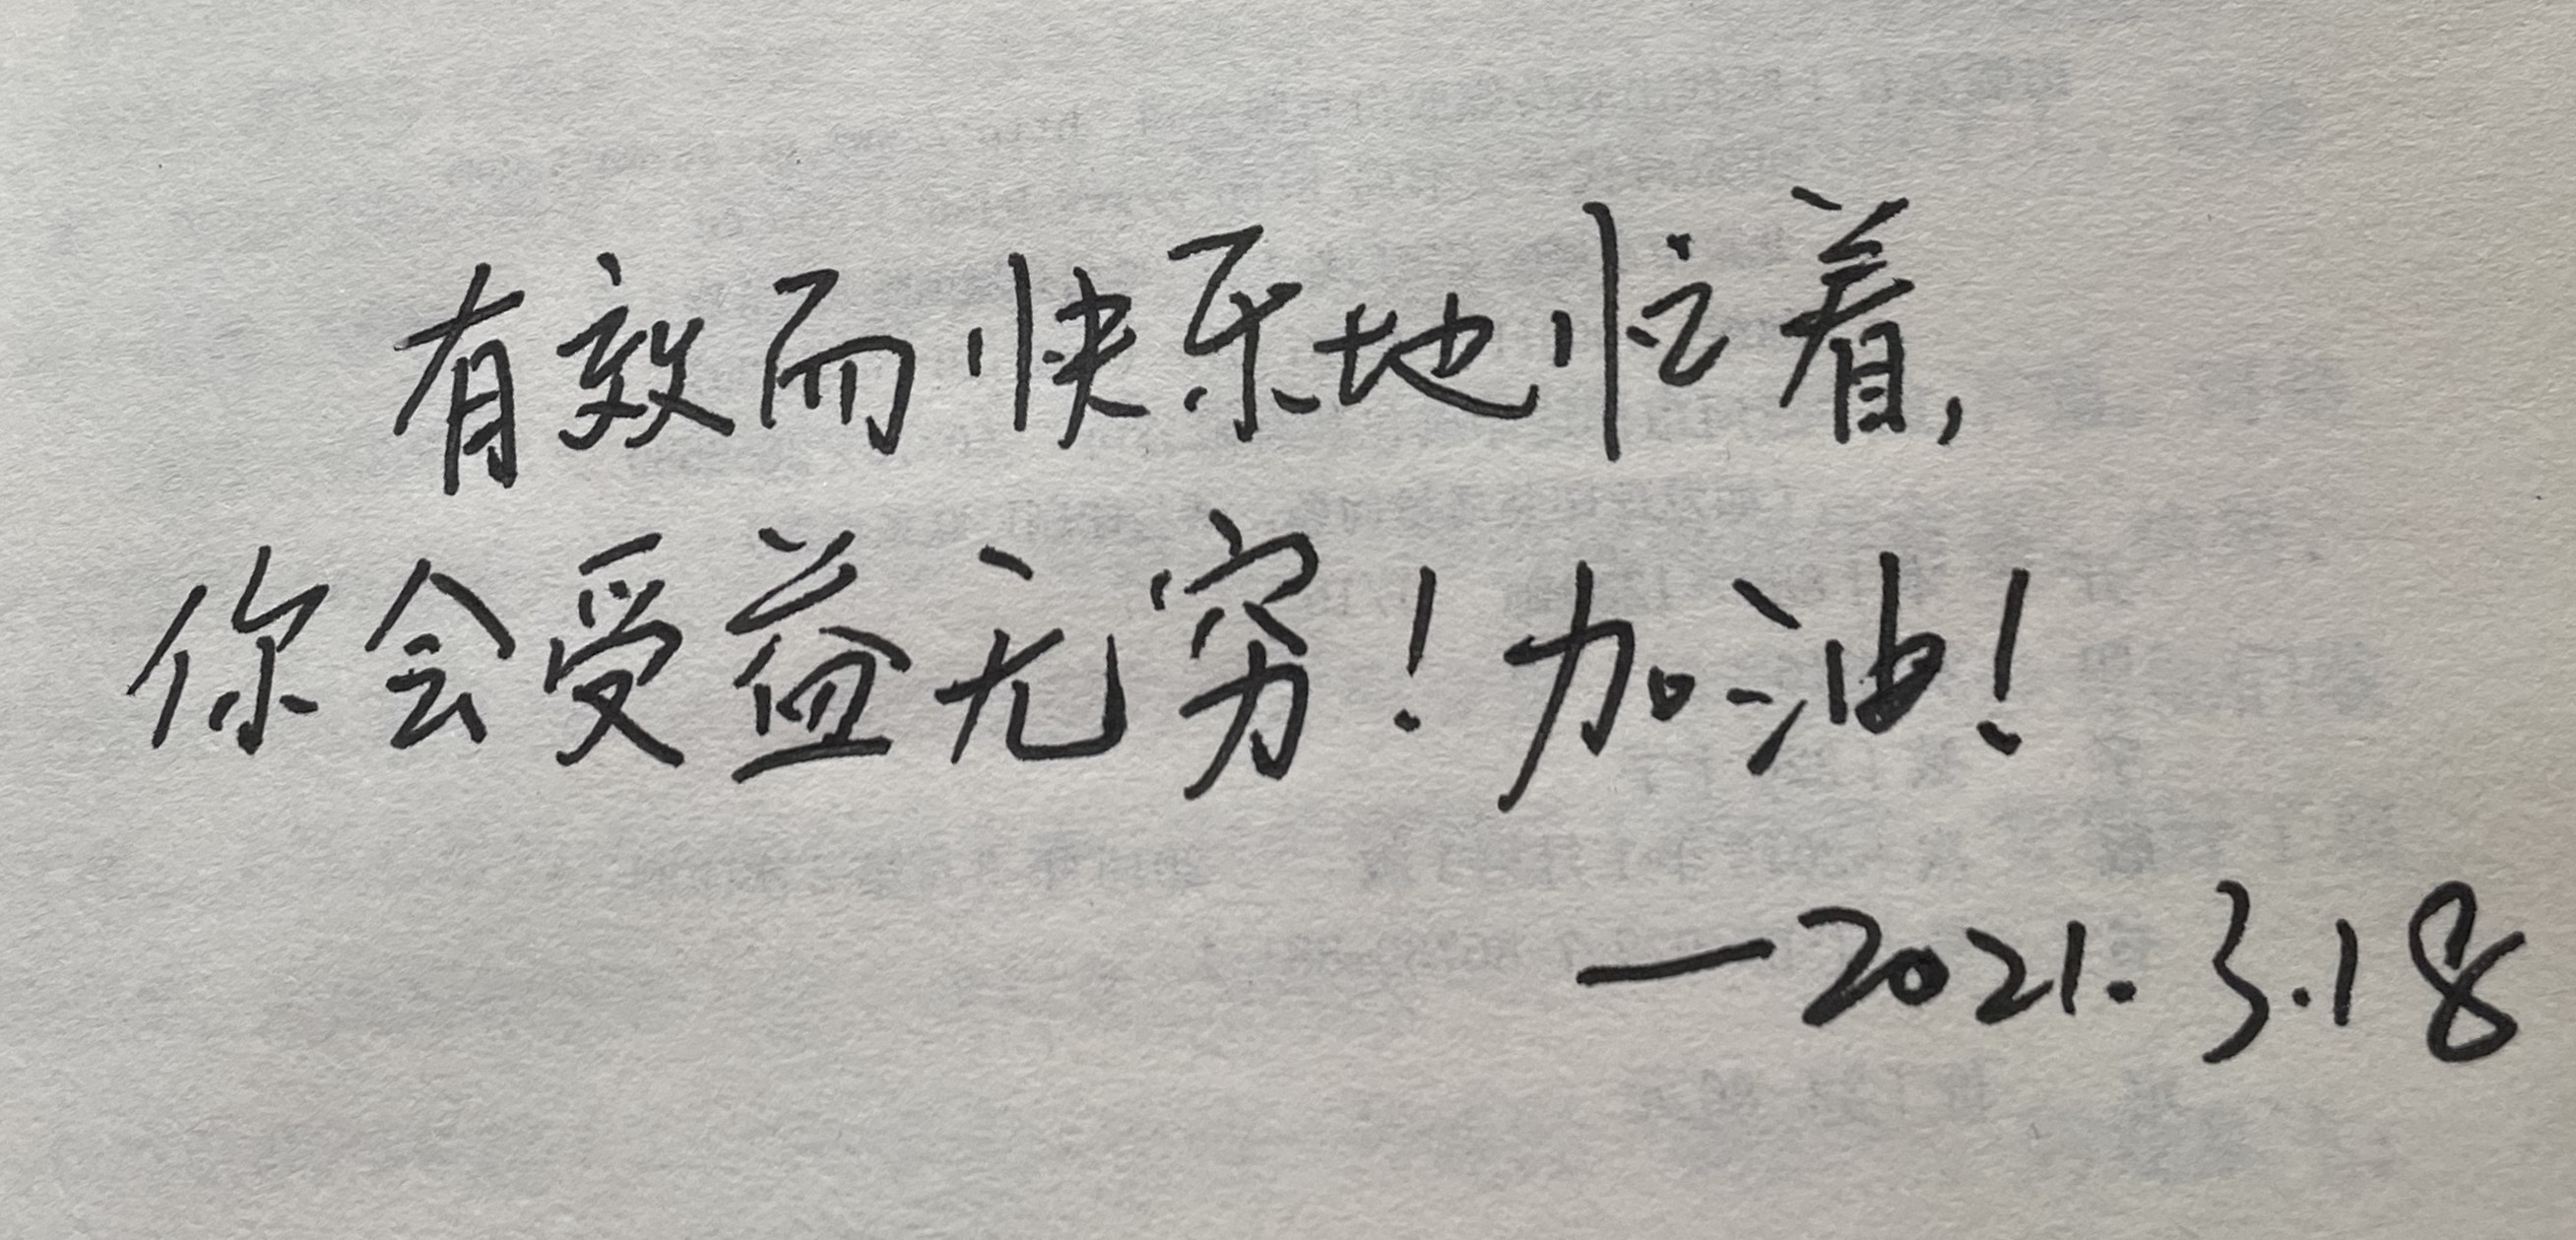 有效而快乐地忙着,
你会受益无穷!加油!
—2021.3.18